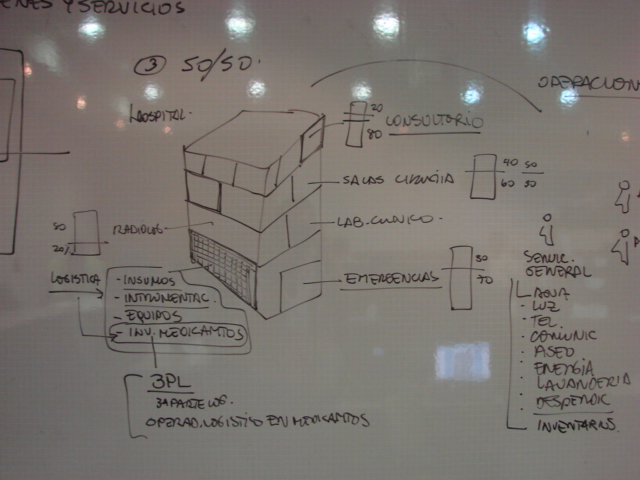 ENES Y SERVICIOS
③ 50/50.
OPERACION
HOSPITAL
20
80
CONSULTORIO
SALAS CIRUGIA
40 50
60 50
LAB. CLINICO.
80
20%
LOGISTICA
- INSUMOS
- EQUIPOS
- INV. MEDICAMTOS
EMERGENCIAS
30
70
SERVIC.
GENERAL
AGUA
- LUZ
- TEL.
- COMUNIC
- ASEO
- ENERGÍA
- LAVANDERIA
INVENTARIOS.
3PL
3A PARTE LOG.
OPERAD. LOGISTICO EN MEDICAMTOS